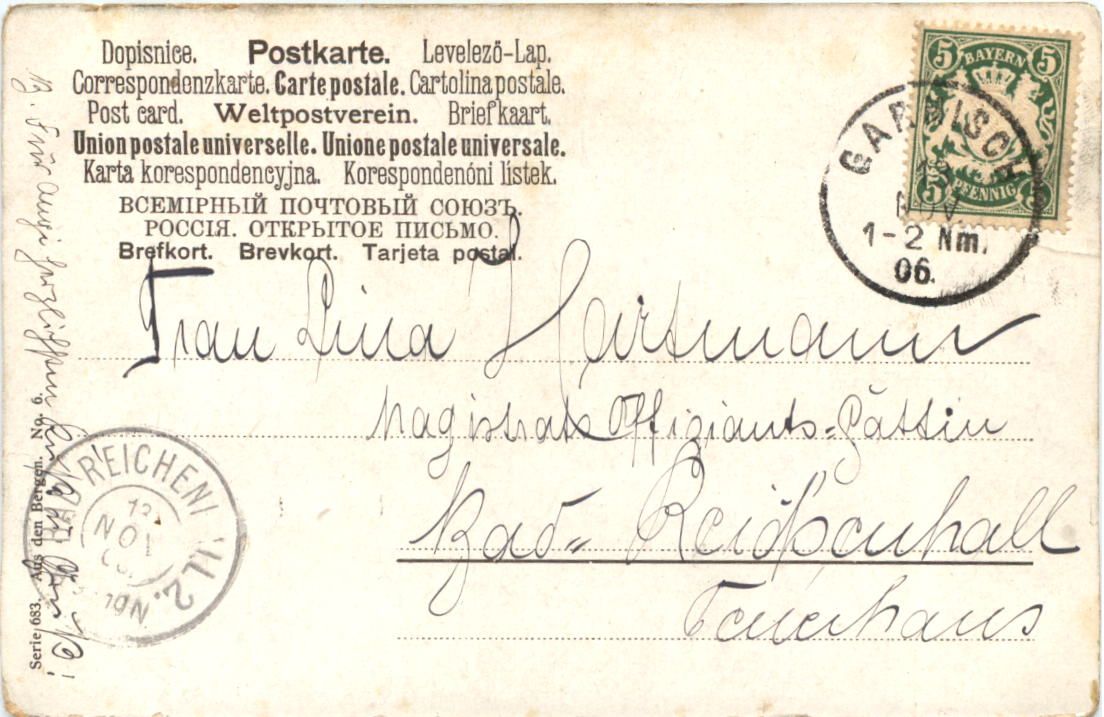 Dopisnice. Postkarte. Levelező-Lap.
Correspondenzkarte. Carte postale. Cartolina postale.
Post card. Weltpostverein. Briefkaart.
Union postale universelle. Unione postale universale.
Karta korespondencyjna. Korespondenóni listek.
ВСЕМІРНЫЙ ПОЧТОВЫЙ СОЮЗЪ.
РОССІЯ. ОТКРЫТОЕ ПИСЬМО.
Brefkort. Brevkort. Tarjeta postal.
5 BAYERN 5
5 PFENNIG 5
GARMISCH
NOV.
1-2 Nm.
06.
Frau Lina Hartmann
Magistrats Offiziants-Gattin
Bad- Reichenhall
Feuerhaus
BAD REICHENHALL 2.
12.
NOV
Serie 683. Aus den Bergen. No. 6.